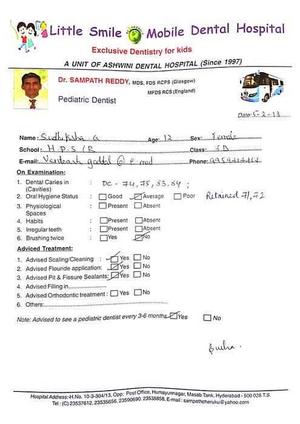 Little Smile Mobile Dental Hospital
Exclusive Dentistry for kids
A UNIT OF ASHWINI DENTAL HOSPITAL (Since 1997)
Dr. SAMPATH REDDY, MDS, FDS RCPS (Glasgow)
MPDS RCS (England)
Pediatric Dentist
Date: 5-2-13
Name: a Age: 12 Sex: Female
School: H.P.S / R Class:
E-mail: Phone:
On Examination:
1. Dental Caries in (Cavities) : DC - 74, 75, 83, 84;
2. Oral Hygiene Status : Good Average Poor Retained 71, 72
3. Physiological Spaces : Present Absent
4. Habits : Present Absent
5. Irregular teeth : Present Absent
6. Brushing twice : Yes No
Adviced Treatment:
1. Advised Scaling/Cleaning : Yes No
2. Advised Flouride application: Yes No
3. Advised Pit & Fissure Sealants: Yes No
4. Advised Filling in
5. Advised Orthodontic treatment : Yes No
6. Others:
Note: Advised to see a pediatric dentist every 3-6 months Yes No
Hospital Address: H.No. 10-3-304/13, Opp: Post Office, Humayunagar, Masab Tank, Hyderabad - 500 028 T.S.
Tel: (C) 23537612, 23535656, 23590690, 23535858, E-mail: sampathcheruku@yahoo.com